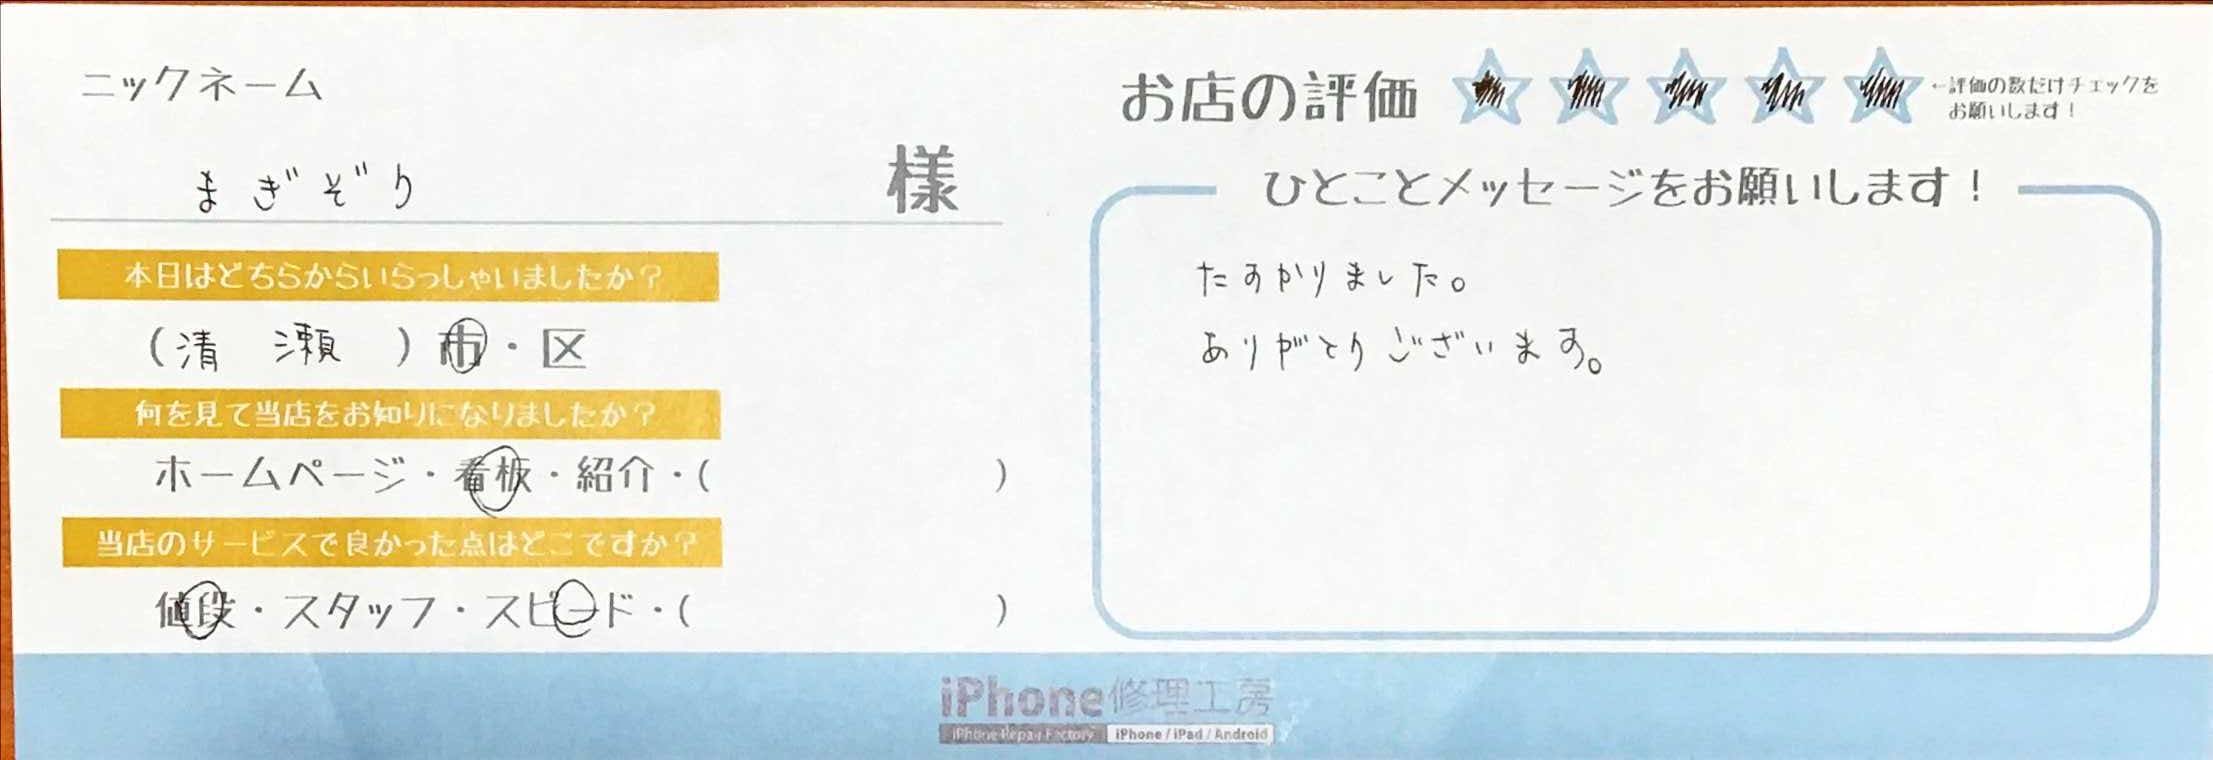 ニックネーム
まぎぞり 様
本日はどちらからいらっしゃいましたか？
(清 瀬 ) 市・区
何を見て当店をお知りになりましたか？
ホームページ・看板・紹介・( )
当店のサービスで良かった点はどこですか？
値段・スタッフ・スピード・( )
お店の評価
←評価の数だけチェックを
お願いします！
ひとことメッセージをお願いします！
たすかりました。
ありがとうございます。
iPhone修理工房
iPhone Repair Factory iPhone / iPad / Android